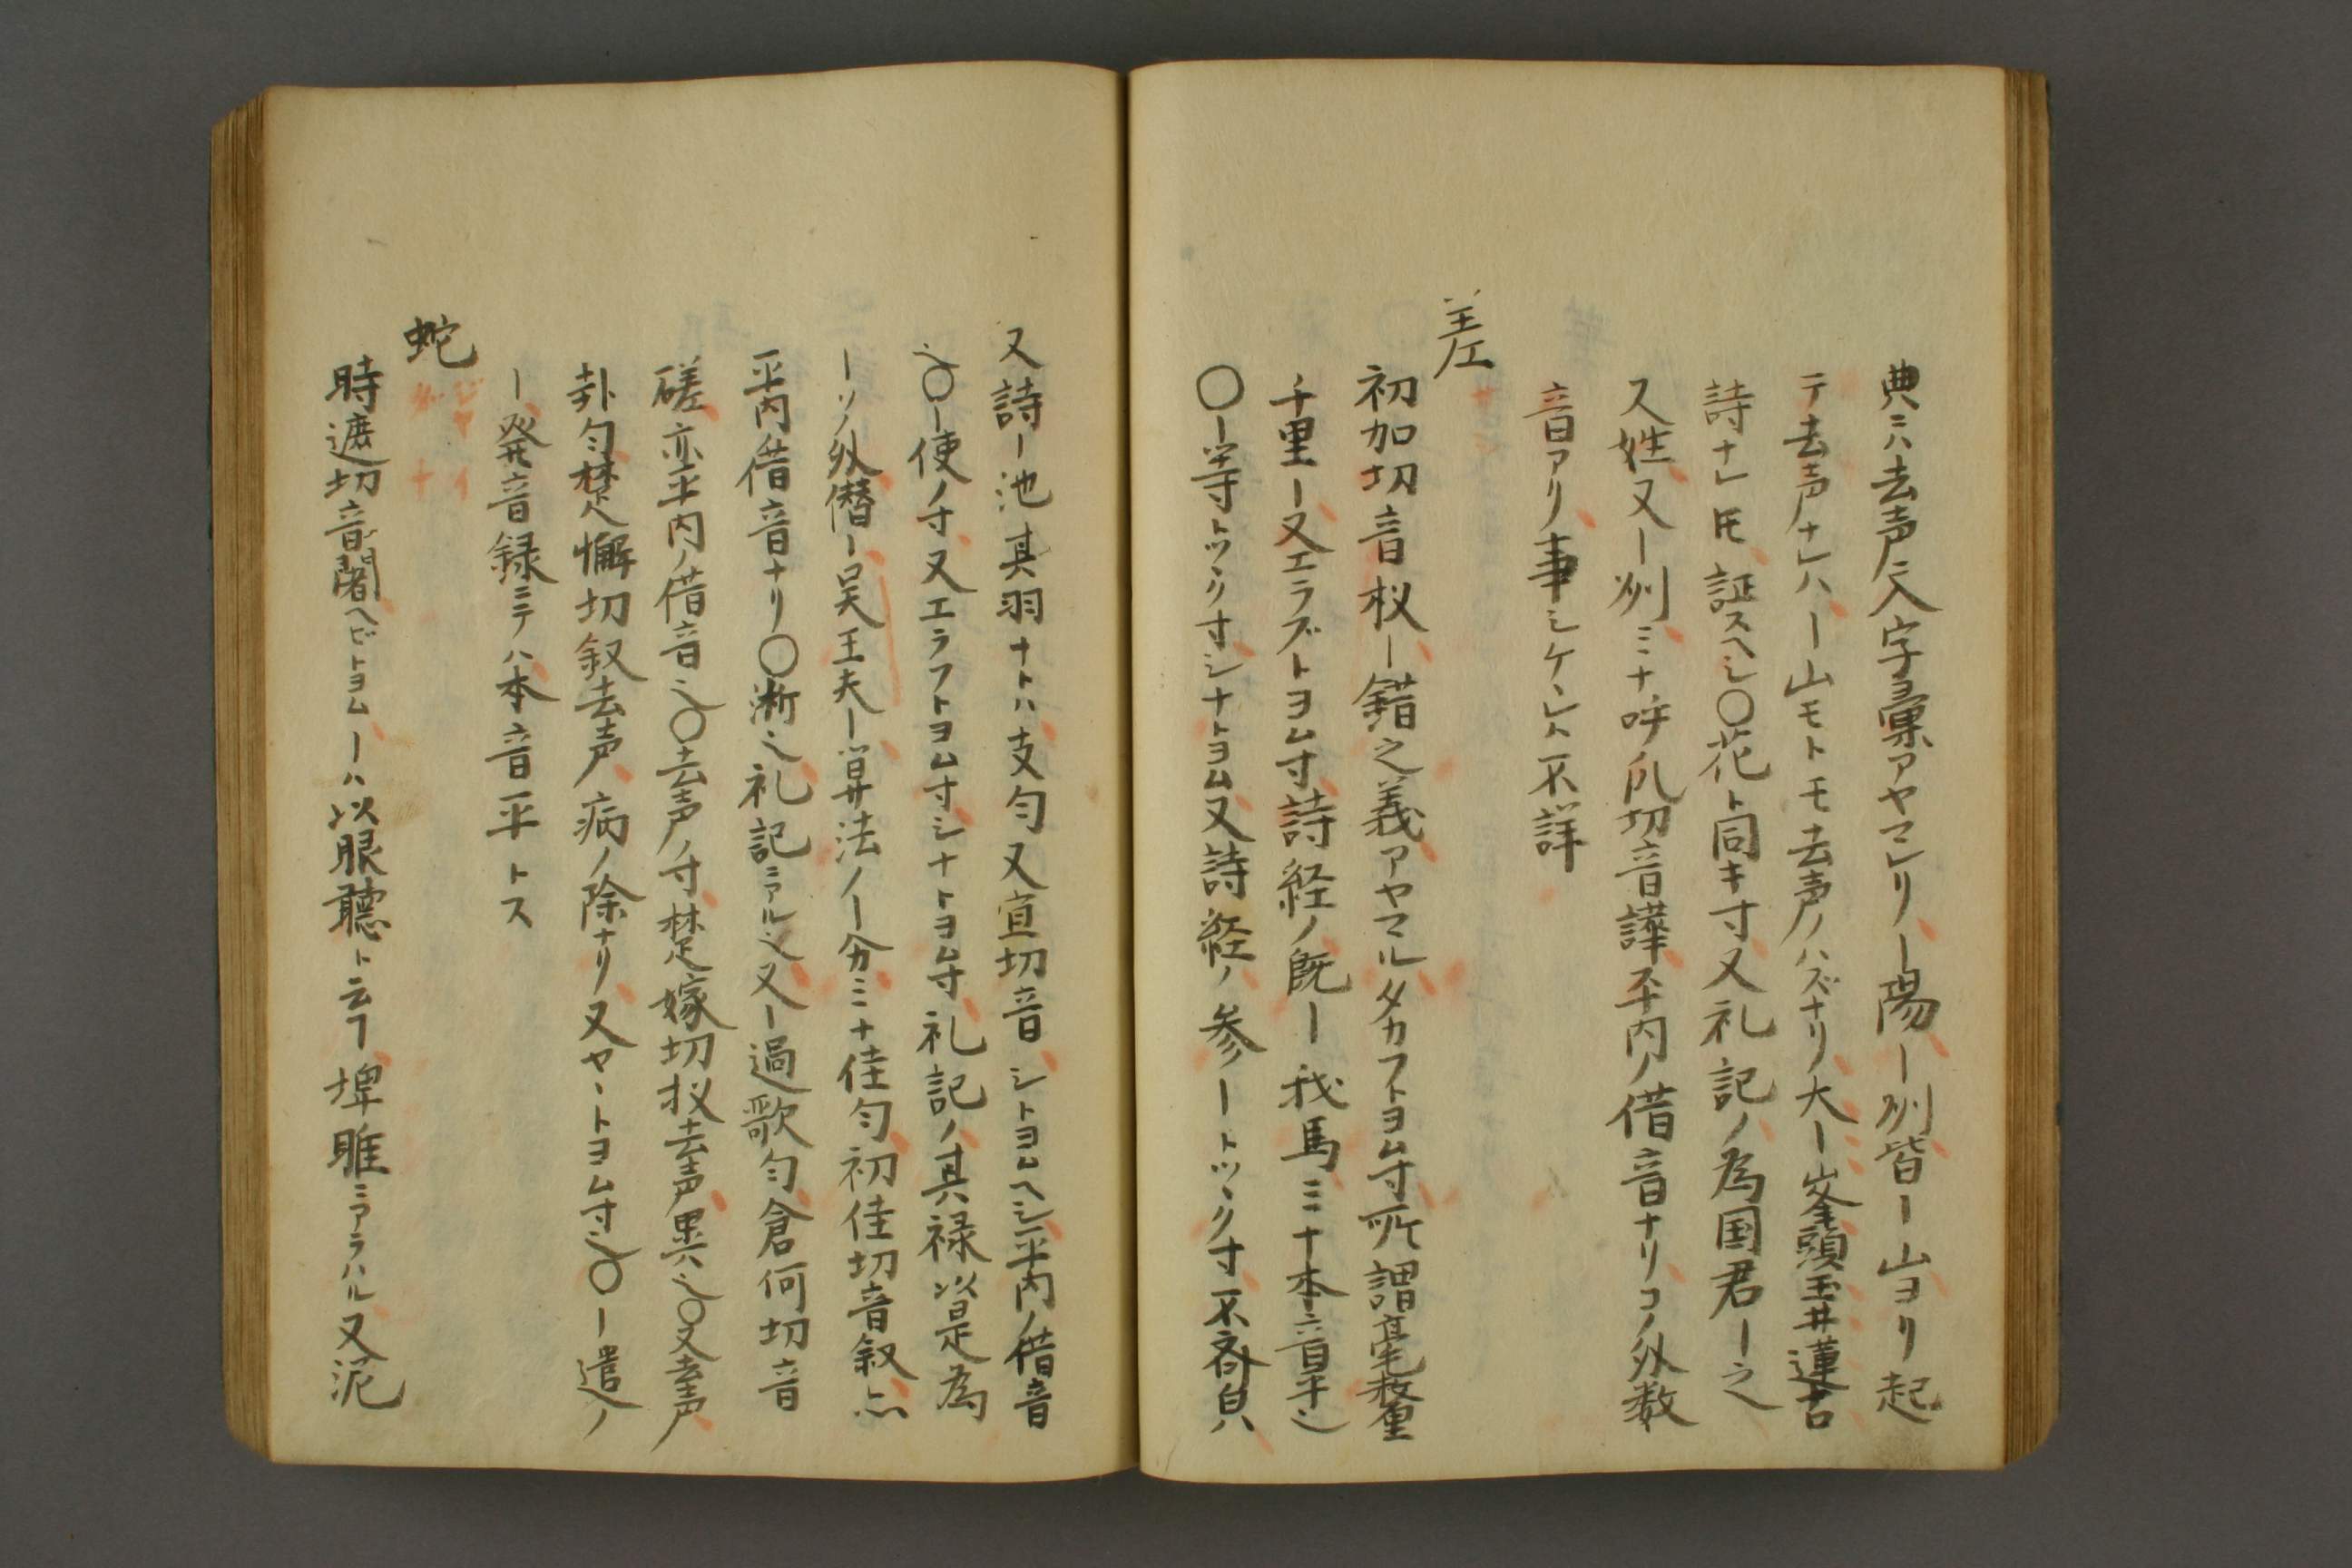 典ニハ去声ニ入字彙アヤマレリ｜陽｜州皆｜山ヨリ起
テ去声ナレハ｜山モトモ去声ノハズナリ大｜峯頭玉井蓮古
詩ナレ𪜈証スヘシ〇花ト同キ寸又礼記ノ為国君｜之
ス姓又｜州ミナ呼瓜切音譁平内ノ借音ナリコノ外数
音アリ事シケレハ不詳
差
初加切音杈｜錯之義アヤマルタカフトヨム寸所謂毫釐
千里｜又エラブトヨム寸詩経ノ既｜我馬ミナ本音平也
〇｜等トツヽク寸シナトヨム又詩経ノ参｜トツヽク寸不斉皃
又詩｜池其羽ナトハ支匀又宜切音シトヨムヘシ平内ノ借音
也〇｜使ノ寸又エラフトヨム寸シナトヨム寸礼記ノ其禄以是為
｜ソノ外僭｜呉王夫｜算法ノ｜分ミナ佳匀初佳切音釵亦
平内借音ナリ〇淅也礼記ニアル也又｜過歌匀倉何切音
磋亦平内ノ借音也〇去声ノ寸楚嫁切杈去声異也〇又去声
卦匀楚懈切釵去声病ノ除ナリ又ヤヽトヨム寸也〇｜遣ノ
｜発音録ニテハ本音平トス
蛇
ジヤ イ
タ ナ
時遮切音闍ヘビトヨム｜ハ以眼聴ト云ヿ埤雅ニアラハル又泥